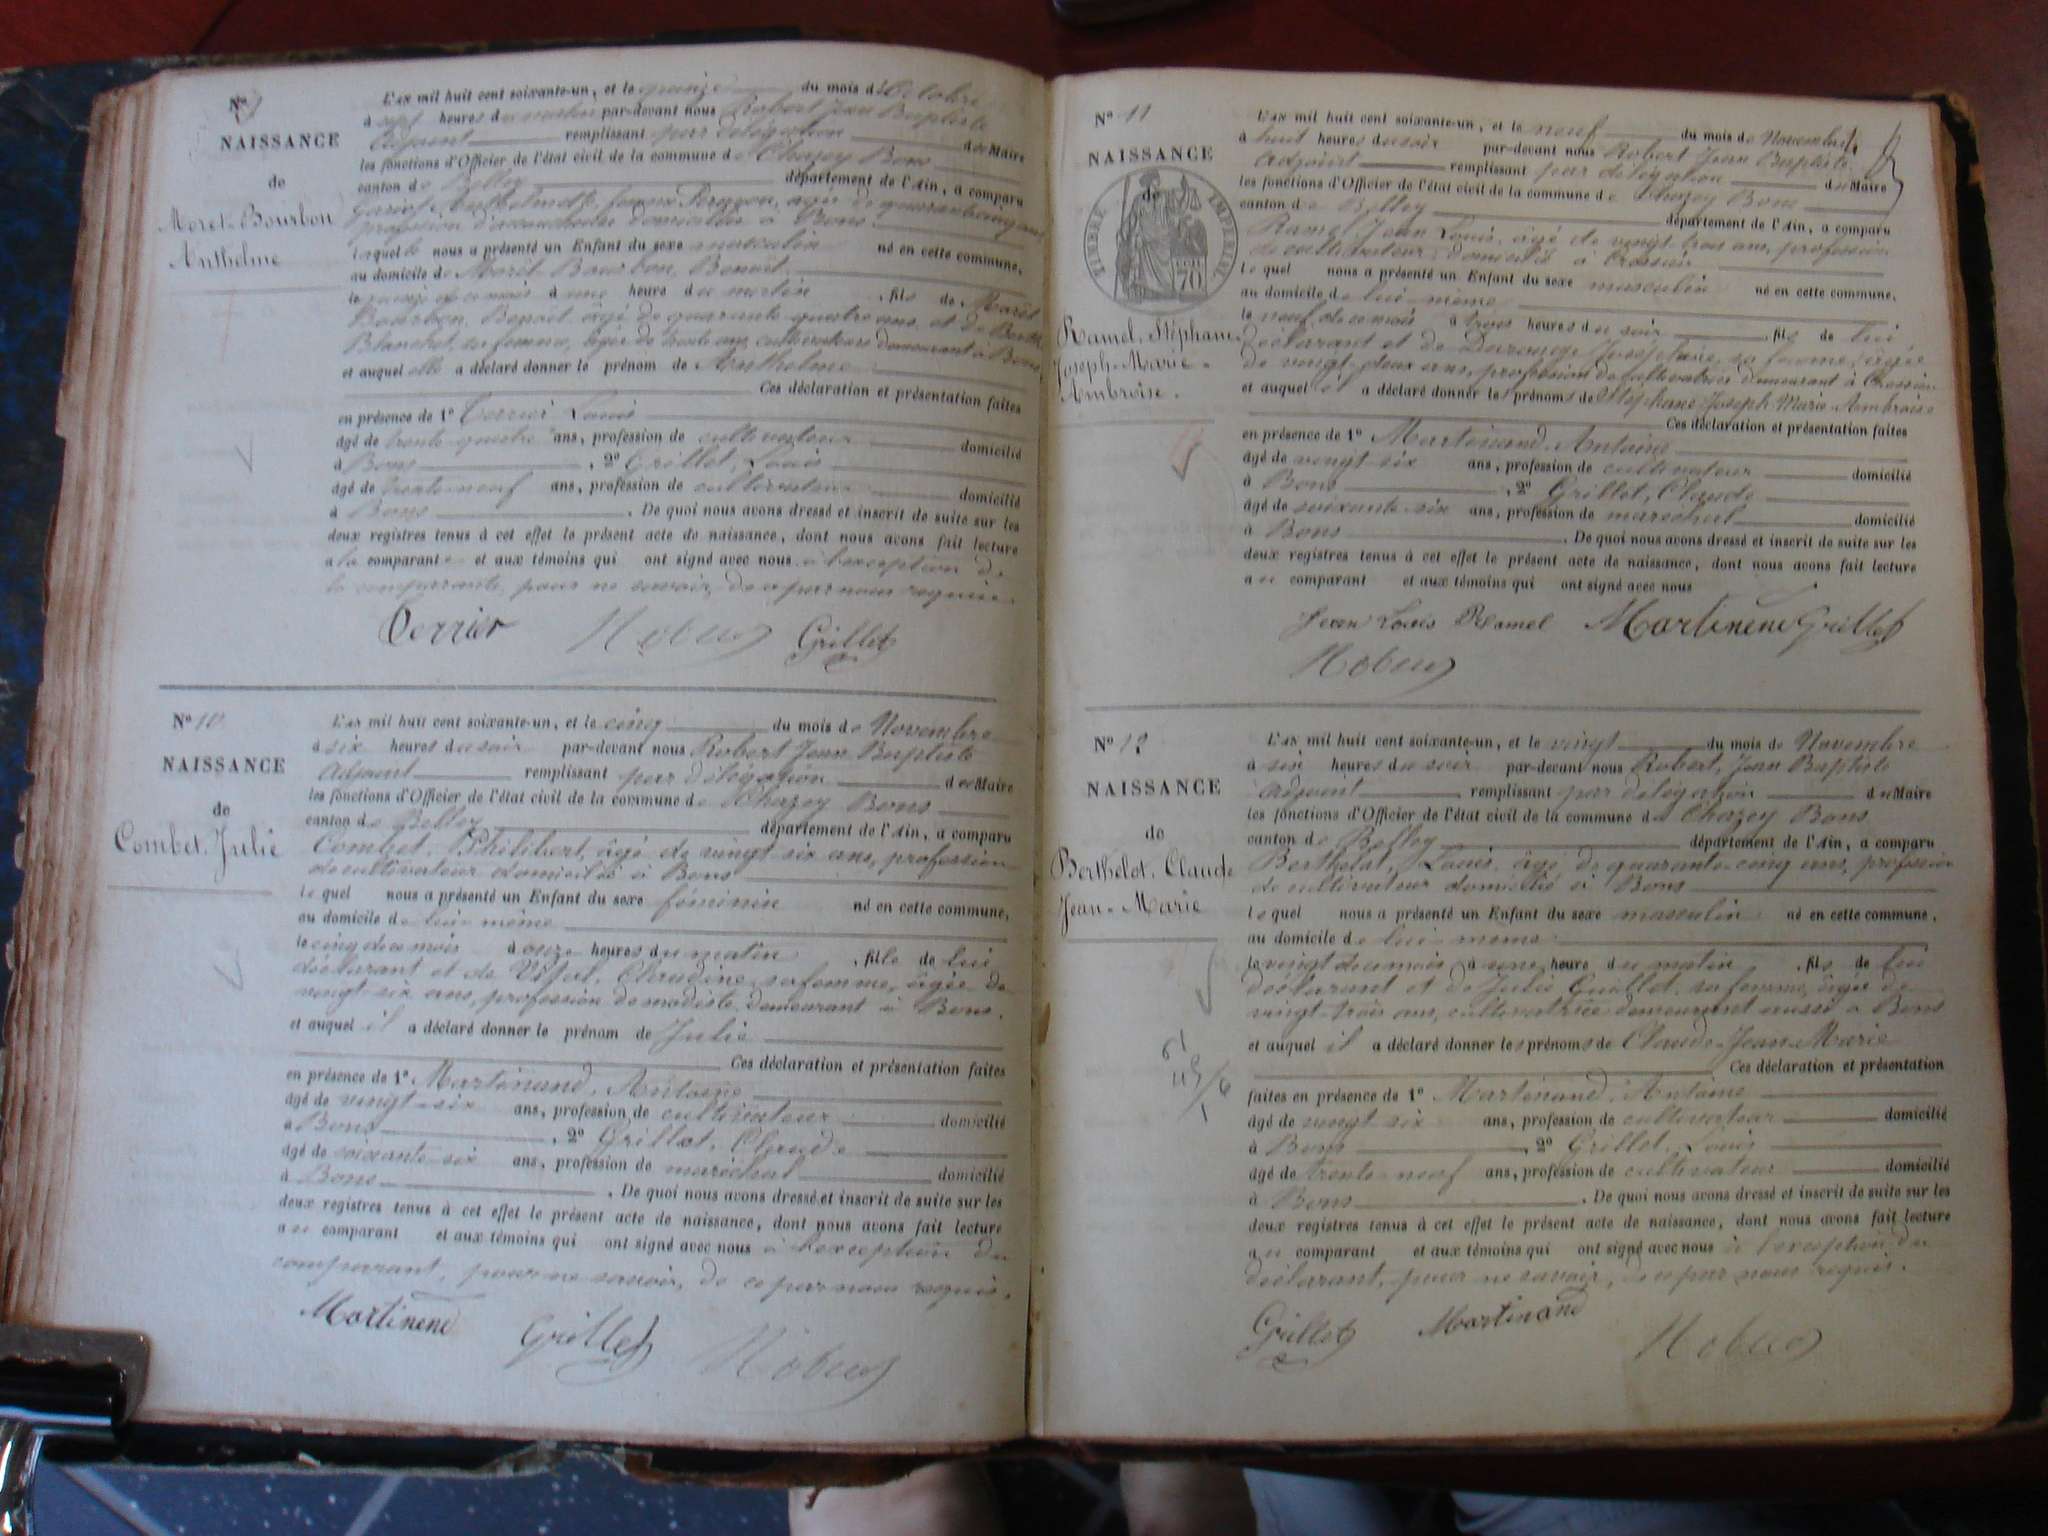 N° 9
NAISSANCE
de
Moret-Bourbon
Anthelme
L'AN mil huit cent soixante-un, et le quinze du mois d'Octobre
à sept heures du matin par-devant nous Robert Jean Baptiste
Adjoint remplissant par délégation du Maire
les fonctions d'Officier de l'état civil de la commune de Chazey Bons
canton de Belley département de l'Ain, a comparu
femme agée de quarante cinq ans
profession d'accoucheuse domiciliée à Bons
laquelle nous a présenté un Enfant du sexe masculin né en cette commune,
au domicile de Moret Bourbon, Benoit
le quinze de ce mois à une heure du matin , fils de Moret
Bourbon, Benoit âgé de quarante quatre ans et de Berthe
Blanchet, sa femme, âgée de trente ans, cultivateurs demeurant à Bons
et auquel elle a déclaré donner le prénom de Anthelme
Ces déclaration et présentation faites
en présence de 1° Terrier Louis
âgé de trente-quatre ans, profession de cultivateur domicilié
à Bons , 2° Grillet, Louis
âgé de trente-neuf ans, profession de cultivateur domicilié
à Bons . De quoi nous avons dressé et inscrit de suite sur les
deux registres tenus à cet effet le présent acte de naissance, dont nous avons fait lecture
a la comparante et aux témoins qui ont signé avec nous à l'exception de
la comparante, pour ne savoir, de ce par nous requise.
Terrier Grillet
N° 10
NAISSANCE
de
Combet. Julie
L'AN mil huit cent soixante-un, et le cinq du mois de Novembre
à six heures du soir par-devant nous Robert Jean Baptiste
Adjoint remplissant par délégation du Maire
les fonctions d'Officier de l'état civil de la commune de Chazey Bons
canton de Belley département de l'Ain, a comparu
Combet, Philibert, âgé de vingt six ans, profession
de cultivateur domicilié à Bons
lequel nous a présenté un Enfant du sexe féminin né en cette commune,
au domicile de lui-même
le cinq de ce mois à onze heures du matin , fille de lui
déclarant et de Claudine, sa femme, âgée de
vingt six ans, profession de modiste demeurant à Bons.
et auquel il a déclaré donner le prénom de Julie
Ces déclaration et présentation faites
en présence de 1° Martinand, Antoine
âgé de vingt-six ans, profession de cultivateur domicilié
à Bons , 2° Grillet, Claude
âgé de soixante-six ans, profession de maréchal domicilié
à Bons . De quoi nous avons dressé et inscrit de suite sur les
deux registres tenus à cet effet le présent acte de naissance, dont nous avons fait lecture
au comparant et aux témoins qui ont signé avec nous à l'exception du
comparant, pour ne savoir, de ce par nous requis.
Martinend Grillet
N° 11
NAISSANCE
de
TIMBRE IMPERIAL
70
Ramel, Stéphane
Joseph-Marie-
Ambroise.
L'AN mil huit cent soixante-un, et le neuf du mois de Novembre
à huit heures du soir par-devant nous Robert Jean Baptiste
Adjoint remplissant par délégation du Maire
les fonctions d'Officier de l'état civil de la commune de Chazey Bons
canton de Belley département de l'Ain, a comparu
Ramel, Jean Louis, âgé de vingt trois ans, profession
de cultivateur, domicilié à Cressieu
lequel nous a présenté un Enfant du sexe masculin né en cette commune,
au domicile de lui-même
le neuf de ce mois à trois heures du soir , fils de lui
déclarant et de sa femme, âgée
de vingt-deux ans, profession de cultivatrice demeurant à Cressieu
et auquel il a déclaré donner les prénoms de Stéphane Joseph Marie Ambroise
Ces déclaration et présentation faites
en présence de 1° Martinand, Antoine
âgé de vingt six ans, profession de cultivateur domicilié
à Bons , 2° Grillet, Claude
âgé de soixante-six ans, profession de maréchal domicilié
à Bons . De quoi nous avons dressé et inscrit de suite sur les
deux registres tenus à cet effet le présent acte de naissance, dont nous avons fait lecture
au comparant et aux témoins qui ont signé avec nous
Jean Louis Ramel Martinend Grillet
N° 12
NAISSANCE
de
Berthelot. Claude
Jean-Marie
L'AN mil huit cent soixante-un, et le vingt du mois de Novembre
à six heures du soir par-devant nous Robert, Jean Baptiste
Adjoint remplissant par délégation du Maire
les fonctions d'Officier de l'état civil de la commune de Chazey Bons
canton de Belley département de l'Ain, a comparu
Berthelot, Louis, âgé de quarante-cinq ans, profession
de cultivateur domicilié à Bons
lequel nous a présenté un Enfant du sexe masculin né en cette commune,
au domicile de lui-même
le vingt de ce mois à une heure du matin , fils de lui
déclarant et de Julie Guillet, sa femme, âgée de
vingt-trois ans, cultivatrice demeurant aussi à Bons
et auquel il a déclaré donner les prénoms de Claude-Jean-Marie
Ces déclaration et présentation
faites en présence de 1° Martinand, Antoine
âgé de vingt six ans, profession de cultivateur domicilié
à Bons , 2° Grillet, Louis
âgé de trente-neuf ans, profession de cultivateur domicilié
à Bons . De quoi nous avons dressé et inscrit de suite sur les
deux registres tenus à cet effet le présent acte de naissance, dont nous avons fait lecture
au comparant et aux témoins qui ont signé avec nous à l'exception du
déclarant, pour ne savoir, de ce par nous requis.
Grillet Martinand